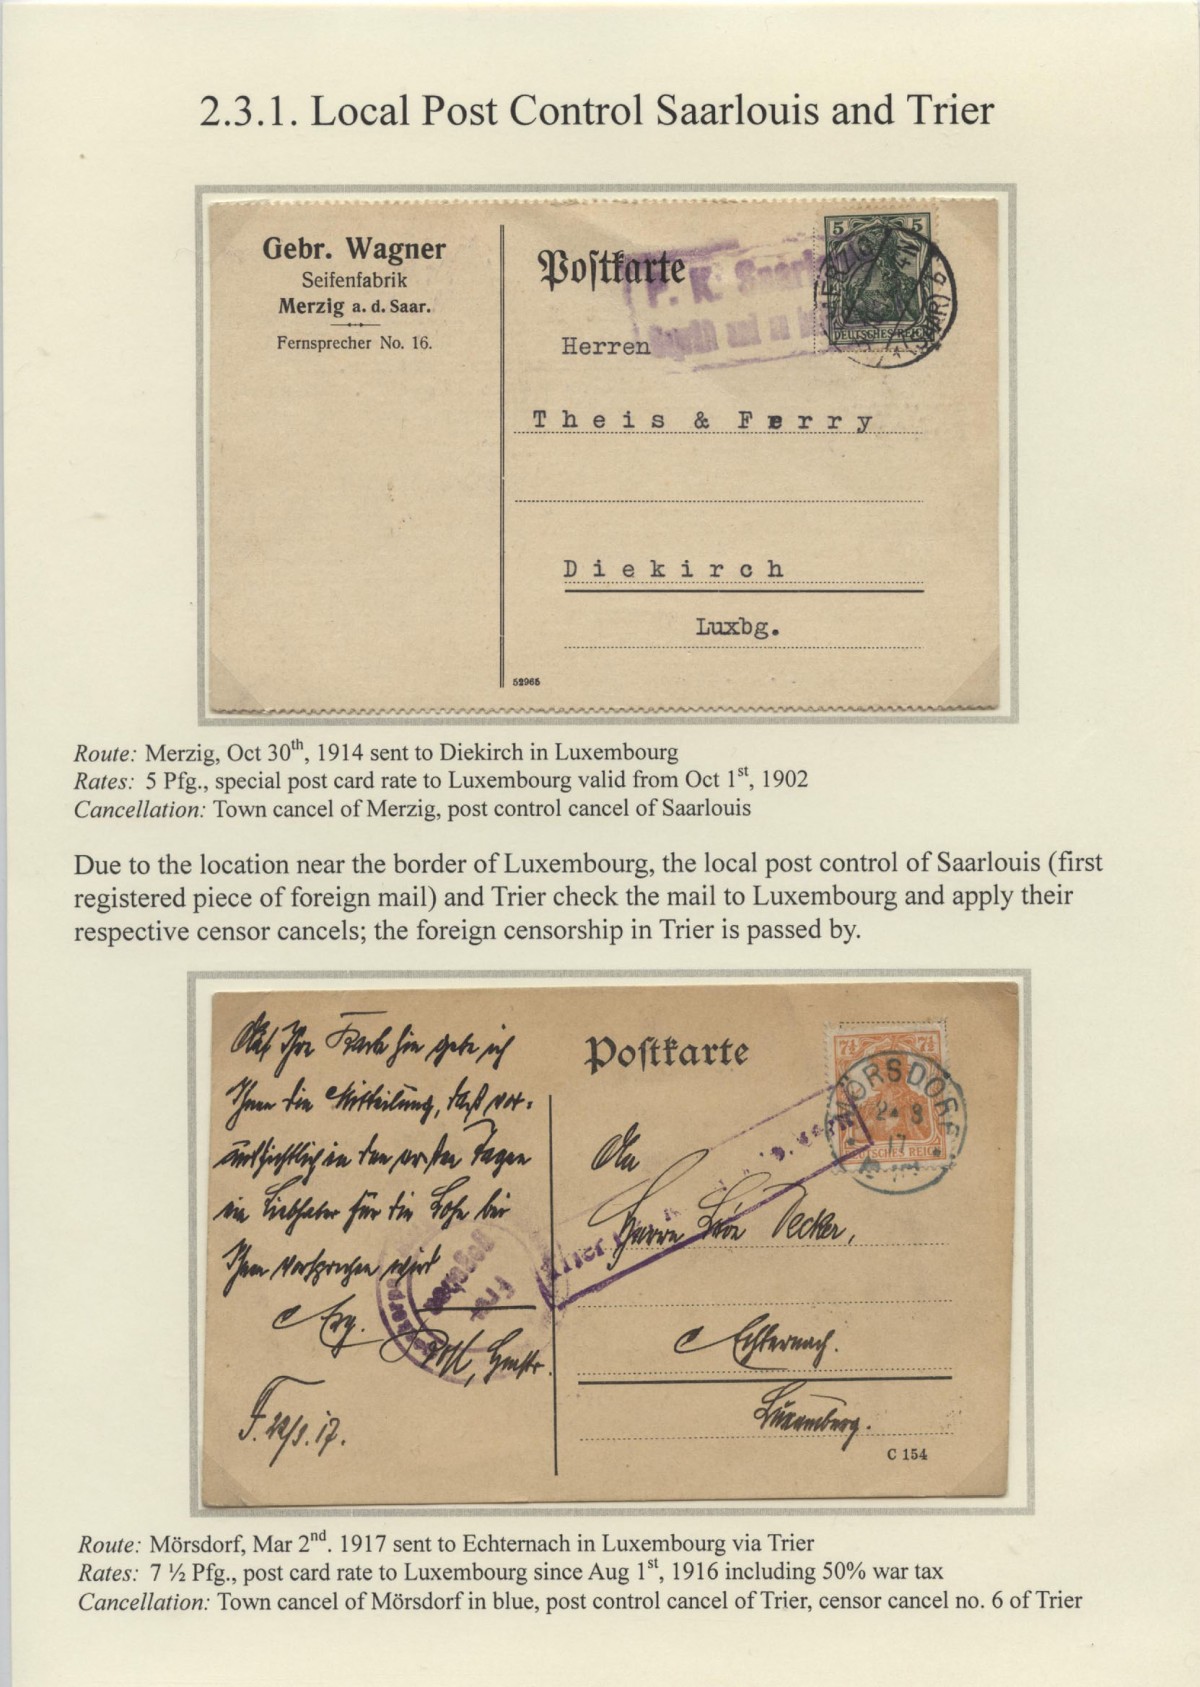 2.3.1. Local Post Control Saarlouis and Trier
Gebr. Wagner
Seifenfabrik
Merzig a. d. Saar.
Fernsprecher No. 16.
Postkarte
P. K. Saarlo
Geprüft und zu be
5 5
DEUTSCHES REICH
MERZIG
(SAAR)
Herren
Theis & Ferry
Diekirch
Luxbg.
52965
Route: Merzig, Oct 30th, 1914 sent to Diekirch in Luxembourg
Rates: 5 Pfg., special post card rate to Luxembourg valid from Oct 1st, 1902
Cancellation: Town cancel of Merzig, post control cancel of Saarlouis
Due to the location near the border of Luxembourg, the local post control of Saarlouis (first
registered piece of foreign mail) and Trier check the mail to Luxembourg and apply their
respective censor cancels; the foreign censorship in Trier is passed by.
Auf Ihre Karte hin gebe ich
Ihnen die Mitteilung, daß vor-
aussichtlich in den ersten Tagen
ein Liebhaber für die Lohe bei
Ihnen vorsprechen wird
Postkarte
7½ 7½
DEUTSCHES REICH
MÖRSDORF
17
An
Herrn Léon Decker,
Trier
Echternach.
Luxemburg.
C 154
Route: Mörsdorf, Mar 2nd. 1917 sent to Echternach in Luxembourg via Trier
Rates: 7 ½ Pfg., post card rate to Luxembourg since Aug 1st, 1916 including 50% war tax
Cancellation: Town cancel of Mörsdorf in blue, post control cancel of Trier, censor cancel no. 6 of Trier